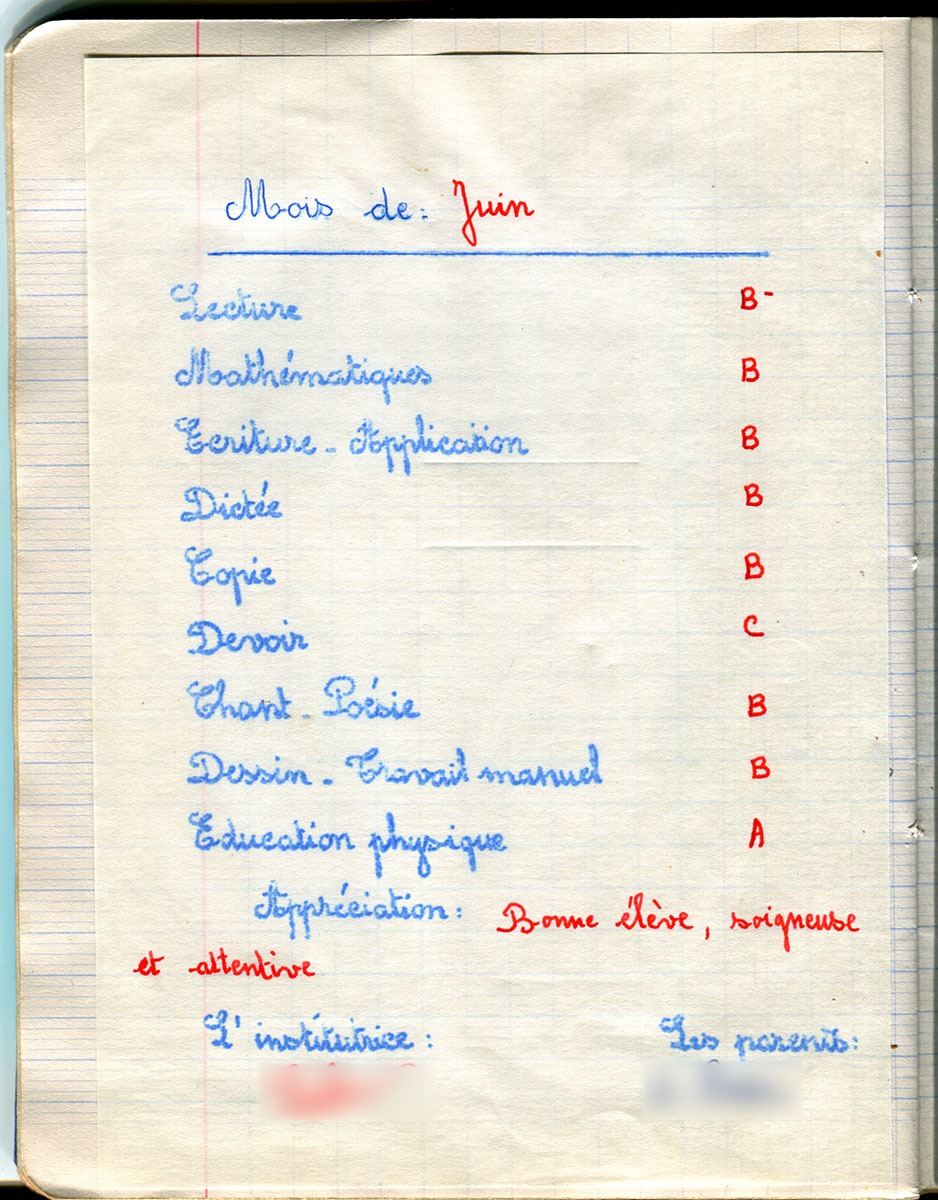 Mois de: Juin
Lecture B-
Mathématiques B
Ecriture - Application B
Dictée B
Copie B
Devoir C
Chant - Poésie B
Dessin - Travail manuel B
Education physique A
Appréciation: Bonne élève, soigneuse
et attentive
L'institutrice : Les parents: